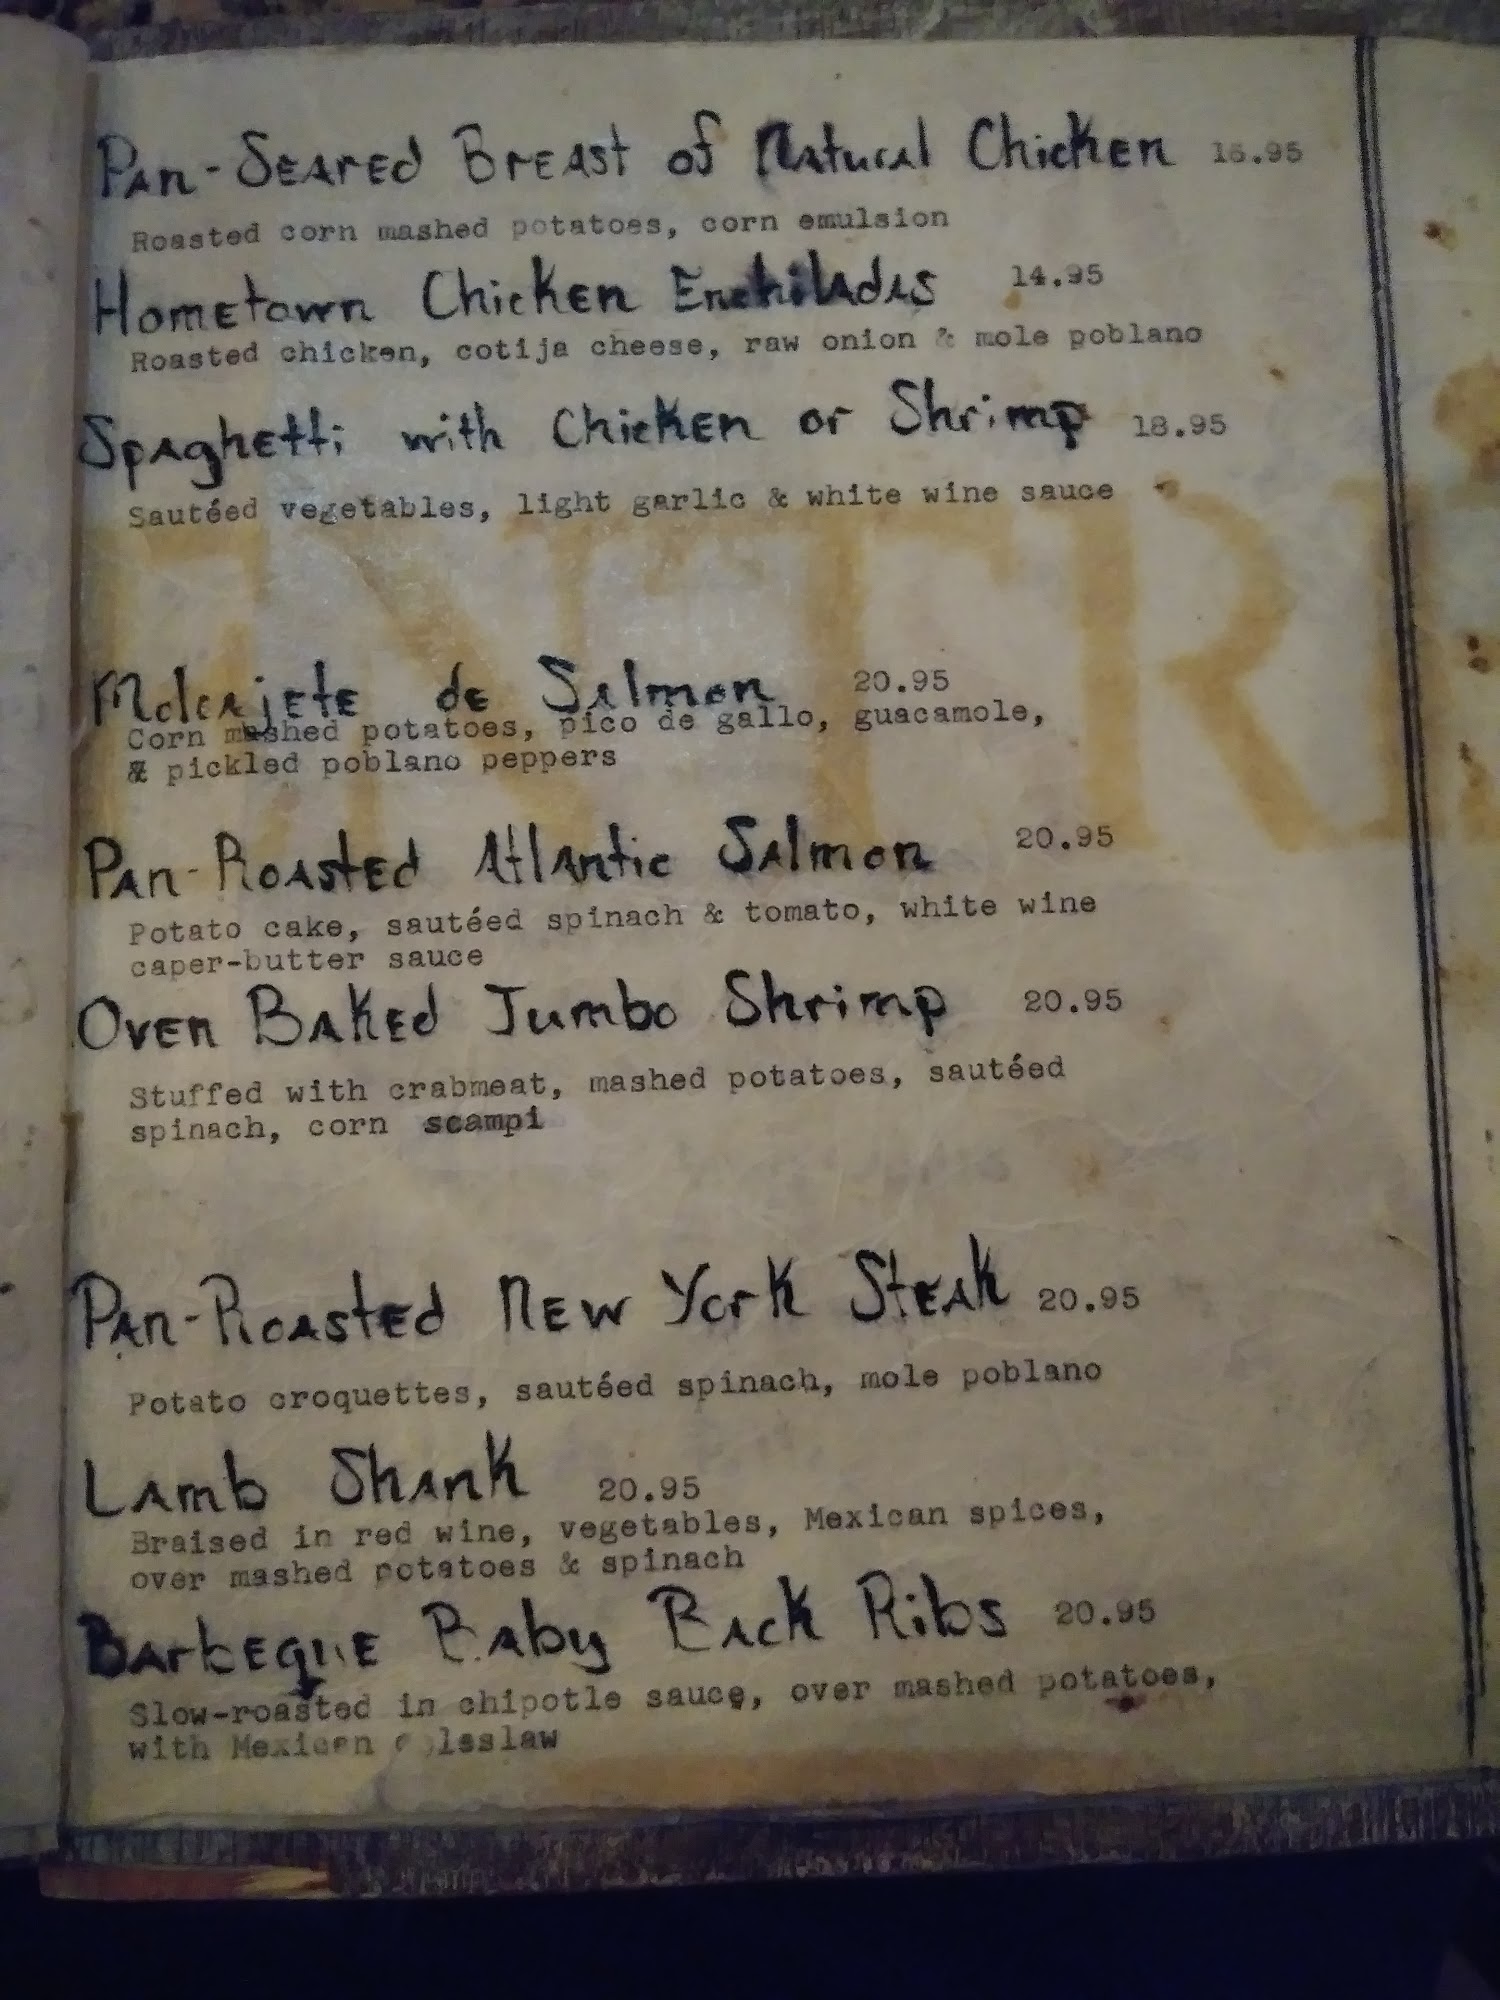 Pan-Seared Breast of Natural Chicken
Roasted corn mashed potatoes, corn emulsion
Hometown Chicken Enchiladas 14.95
Roasted chicken, cotija cheese, raw onion & mole poblano
Spaghetti with Chicken or Shrimp 18.95
Sautéed vegetables, light garlic & white wine sauce
ENTRE
Molcajete de Salmon 20.95
Corn mashed potatoes, pico de gallo, guacamole,
& pickled poblano peppers
Pan-Roasted Atlantic Salmon 20.95
Potato cake, sautéed spinach & tomato, white wine
caper-butter sauce
Oven Baked Jumbo Shrimp 20.95
Stuffed with crabmeat, mashed potatoes, sautéed
spinach, corn scampi
Pan-Roasted New York Steak 20.95
Potato croquettes, sautéed spinach, mole poblano
Lamb Shank 20.95
Braised in red wine, vegetables, Mexican spices,
over mashed potatoes & spinach
Barbeque Baby Back Ribs 20.95
Slow-roasted in chipotle sauce, over mashed potatoes,
with Mexican coleslaw